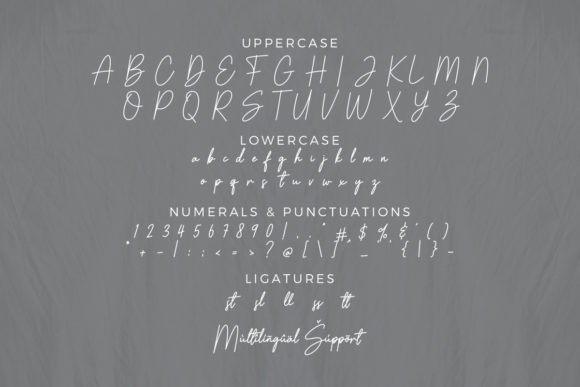 UPPERCASE
A B C D E F G H I J K L M N
O P Q R S T U V W X Y Z
LOWERCASE
a b c d e f g h i j k l m n
o p q r s t u v w x y z
NUMERALS & PUNCTUATIONS
1 2 3 4 5 6 7 8 9 0 ! . , " #, $ %, &' ( )
* + - | : ; < = > ? @ [ \ ] _ { | } -
LIGATURES
st sl ll ss tt
Múltilingûàl Šúppört